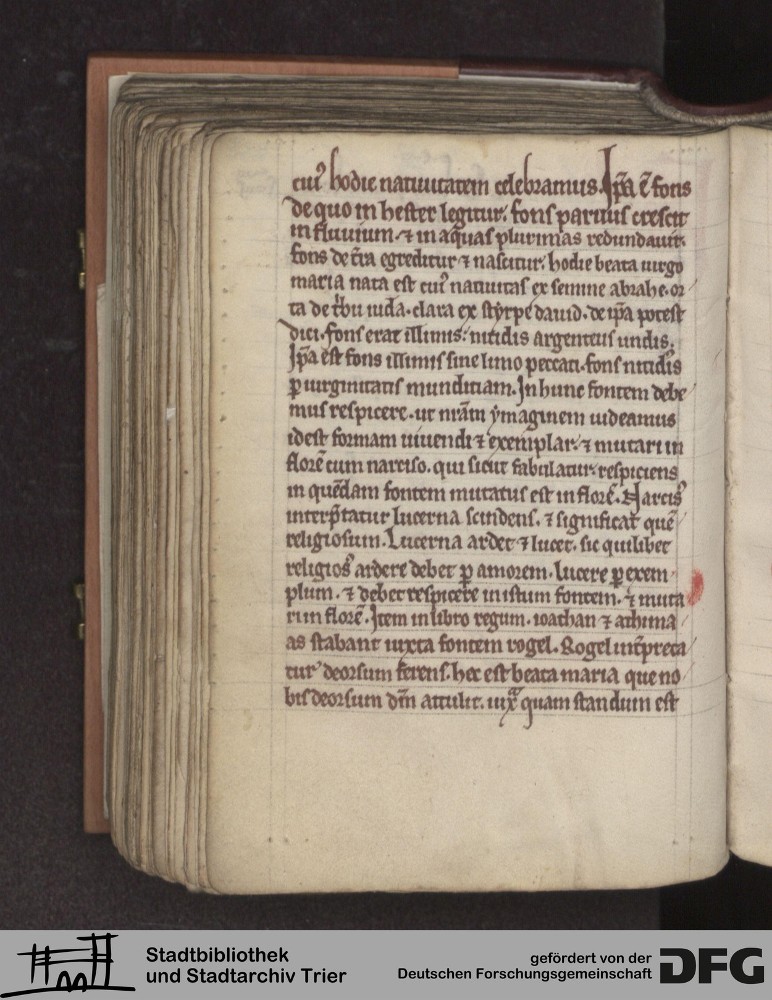 cuiꝰ hodie natiuitatem celebramus. Ip̄a ē fons
de quo in hester legitur. fons paruus crescit
in fluuium ⁊ in aquas plurimas redundauit.
fons de t̄ra egreditur ⁊ nascitur. hodie beata uirgo
maria nata est cuiꝰ natiuitas ex semine abrahe. or
ta de t̄bu iuda. clara ex styrpe dauid. de ip̄a potest
dici. fons erat illimis. nitidis argenteus undis.
Ip̄a est fons illimis sine limo peccati. fons nitidꝰ
ꝑ uirginitatis munditiam. In hunc fontem debe
mus respicere. ut nr̄am ymaginem uideamus
idest formam uiuendi ⁊ exemplar. ⁊ mutari in
florē cum narciso. qui sicut fabulatur respiciens
in quēdam fontem mutatus est in florē. Narcisꝰ
interp̄tatur lucerna scindens. ⁊ significat quē
religiosum. Lucerna ardet ⁊ lucet. sic quilibet
religiosꝰ ardere debet ꝑ amorem. lucere ꝑ exem
plum. ⁊ debet respicere in istum fontem. ⁊ muta
ri in florē. Item in libro regum. ioathan ⁊ achima
as stabant iuxta fontem rogel. Rogel int̄preta
tur deorsum ferens. hec est beata maria que no
bis deorsum dm̄ attulit. iuxᵃ quam standum est
Stadtbibliothek
und Stadtarchiv Trier
gefördert von der
Deutschen Forschungsgemeinschaft
DFG